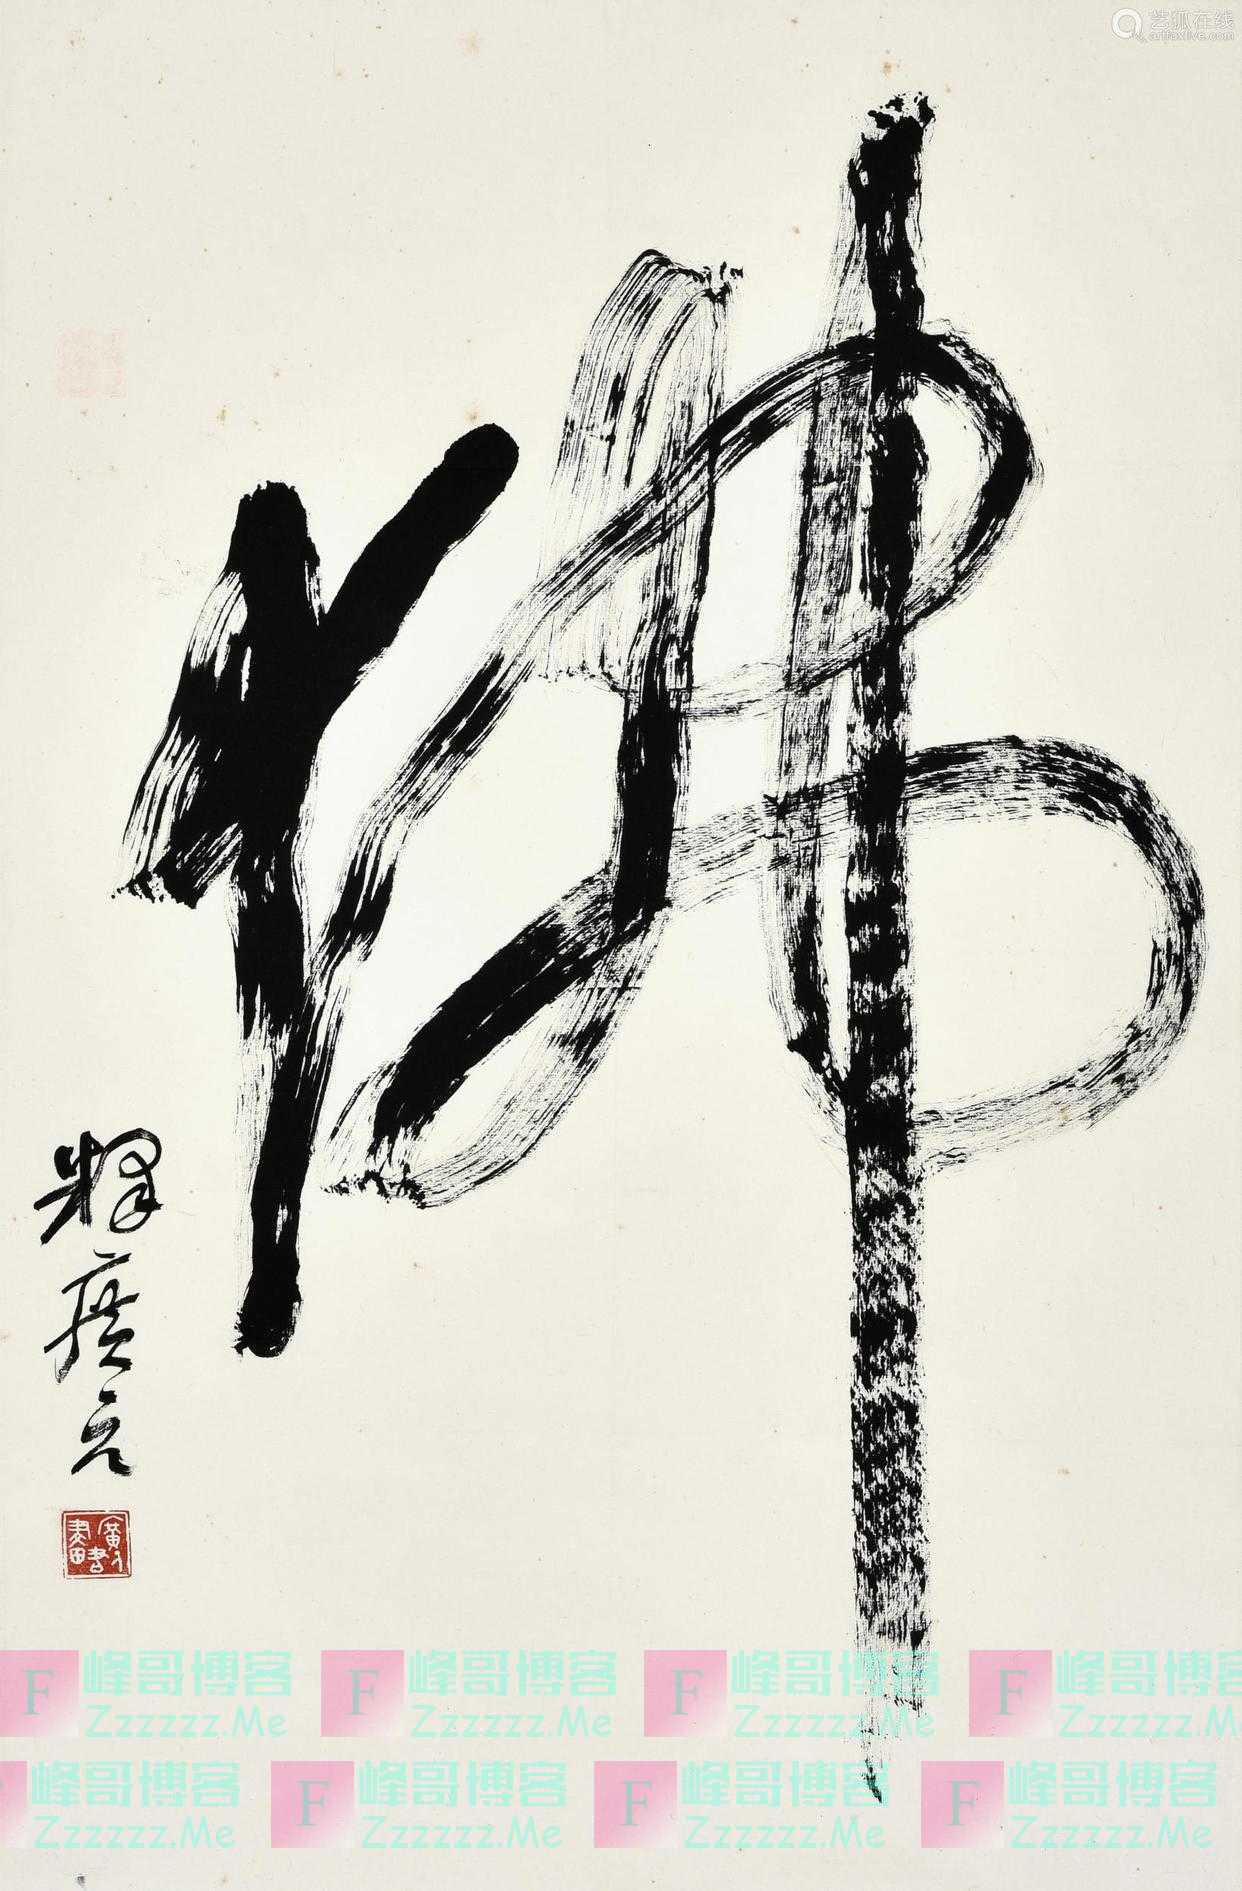 艺狐在线
artfoxlive.com
佛
釋廣元
F 峰哥博客 F 峰哥博客 F 峰哥博客 F 峰哥博客
Zzzzzz.Me Zzzzzz.Me Zzzzzz.Me Zzzzzz.Me
峰哥博客 F 峰哥博客 F 峰哥博客 F 峰哥博客
Zzzzzz.Me Zzzzzz.Me Zzzzzz.Me Zzzzzz.Me